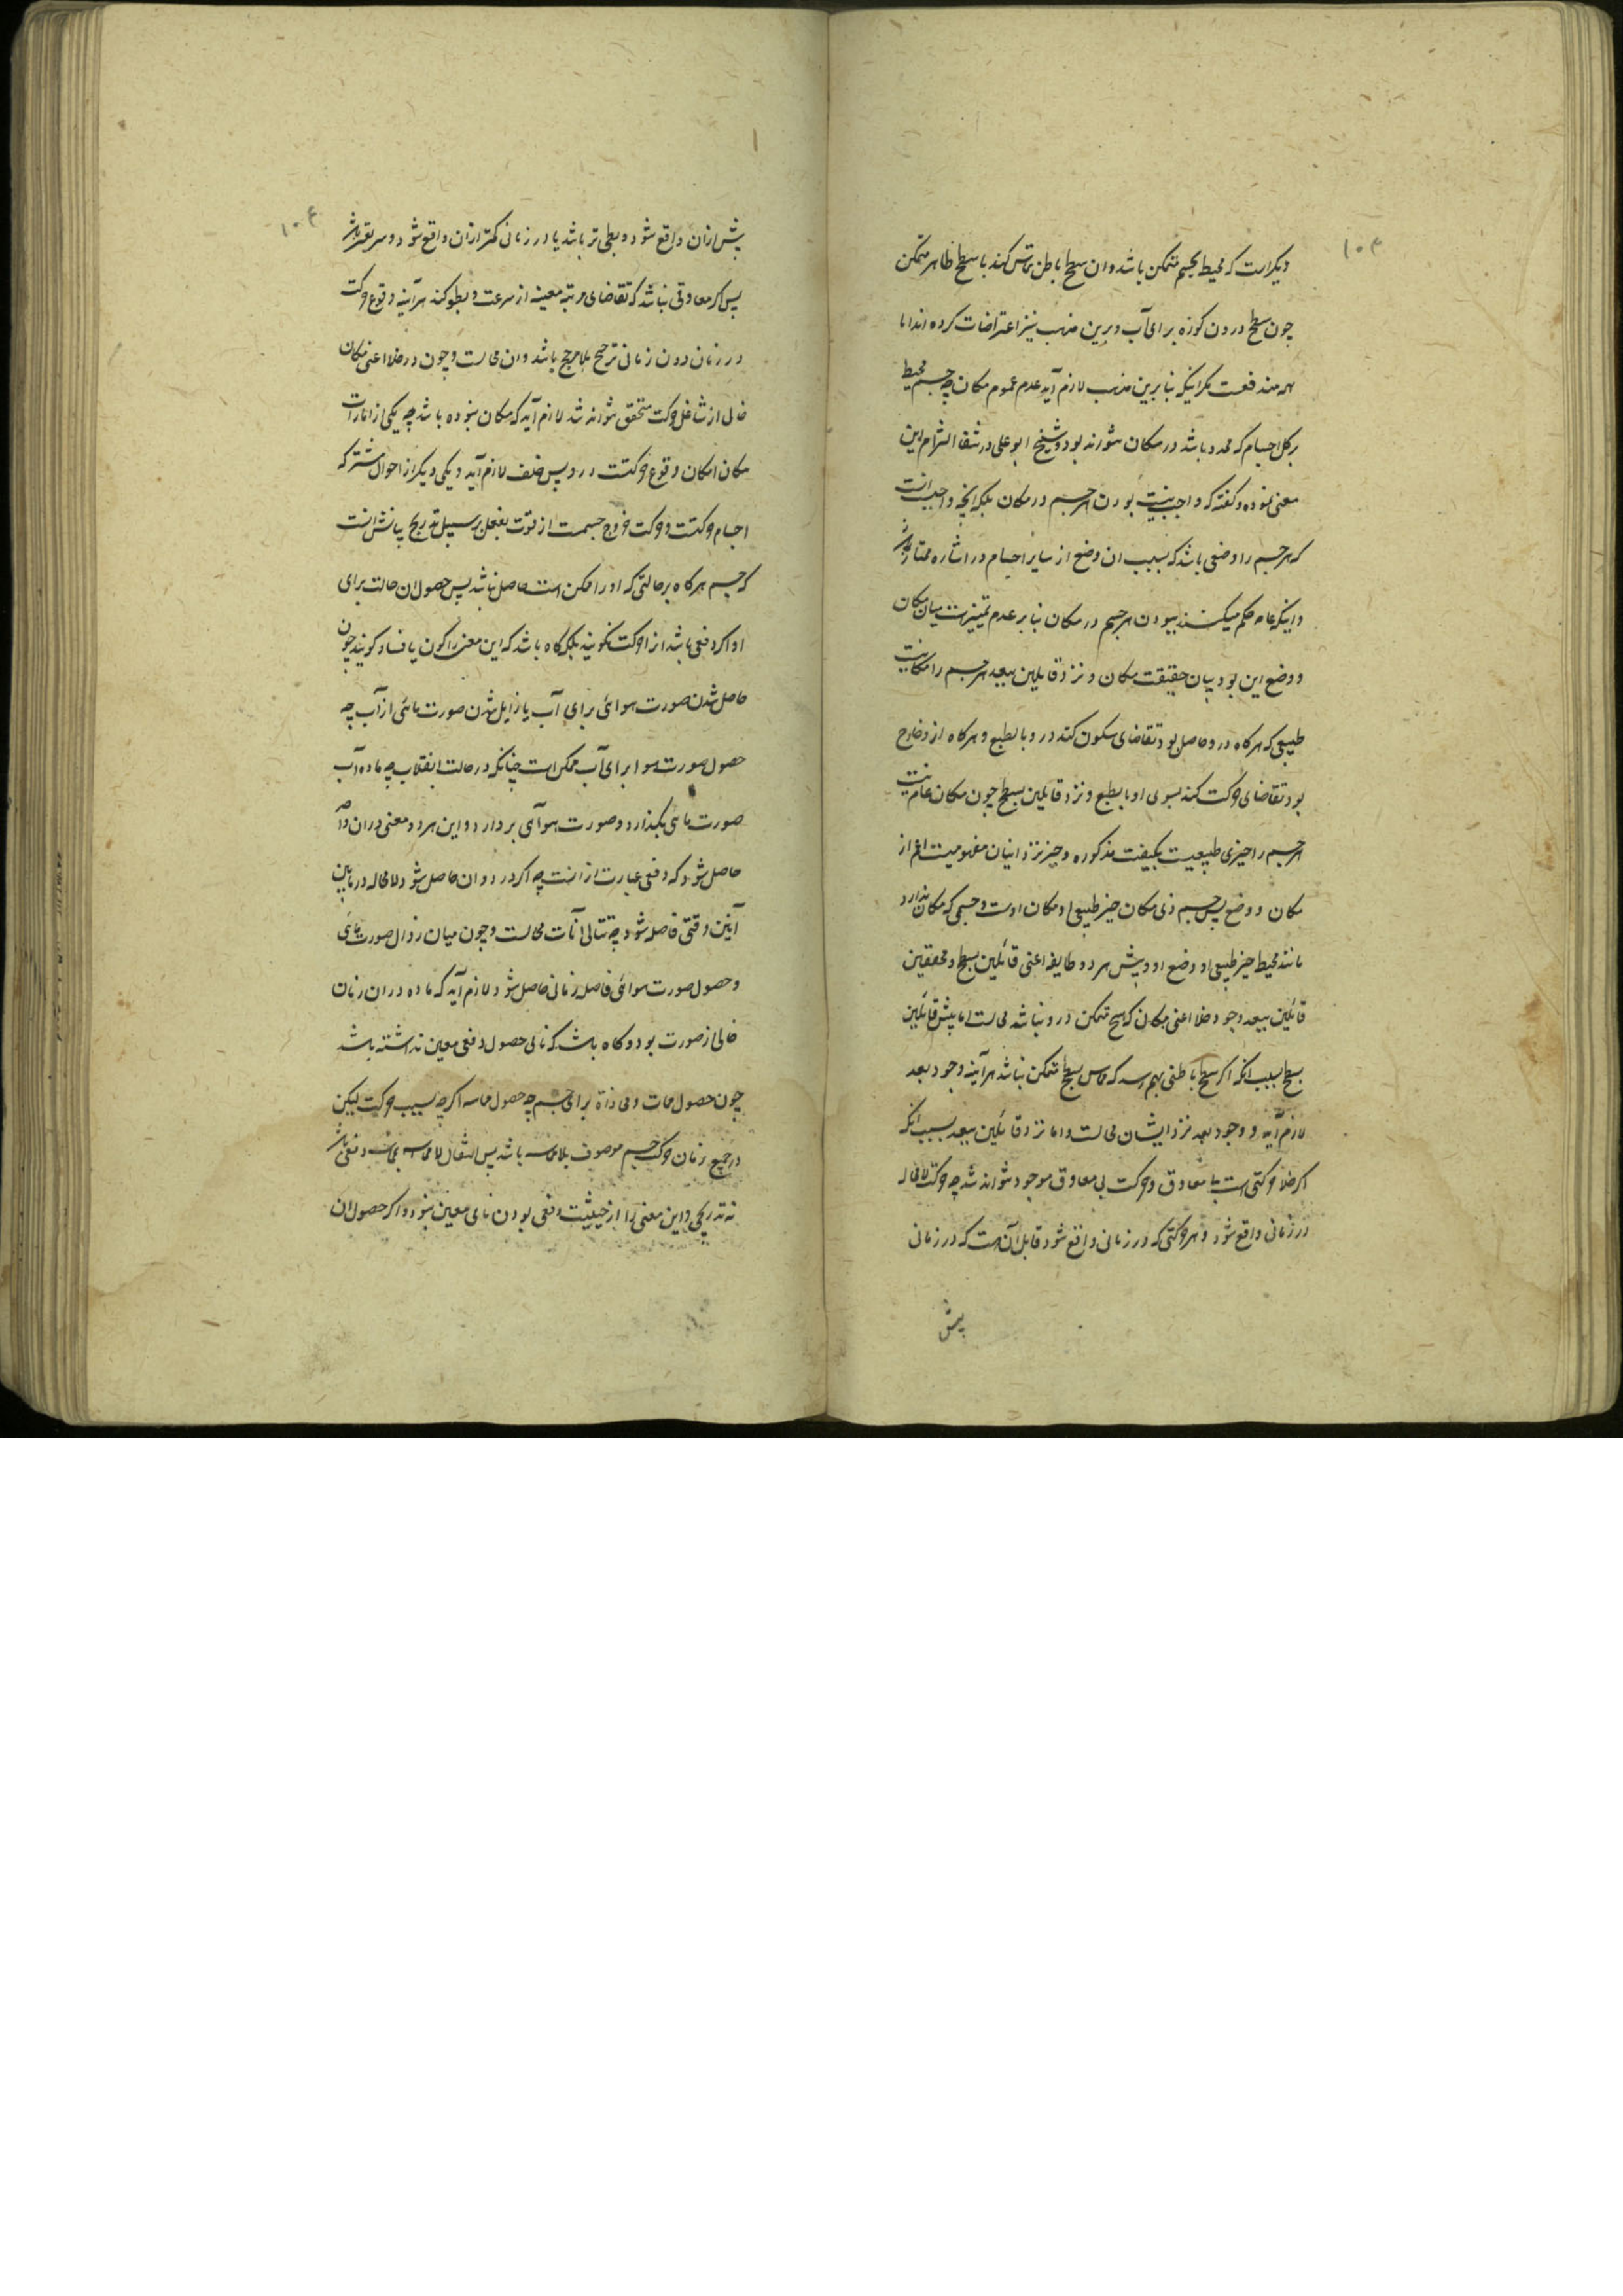 ۱۰۳
دیکراست که محیط بجسم متمکن باشد و ان سطح باطن تماس کند با سطح ظاهر متمکن
چون سطح درون کوزه برای آب و برین مذهب نیز اعتراضات کرده اند اما
همه مندفعست مکر اینکه بنابرین مذهب لازم آید عدم عموم مکان چه جسم محیط
بر کل اجسام که محدد باشد در مکان نتواند بود و شیخ ابو علی در شفا التزام این
معنی نموده و کفته که واجب نیست بودن هر جسم در مکان بلکه آنچه واجب است انست
که هر جسم را وضعی باشد که بسبب ان وضع از سایر اجسام در اشاره ممتاز
و اینکه عامه حکم میکنند ببودن هر جسم در مکان بنابر عدم تمییزست میان مکان
و وضع این بود بیان حقیقت مکان و نزد قایلین ببعد هر جسم را مکانیست
طبیعی که هرکاه درو حاصل بود تقاضای سکون کند درو بالطبع و هرکاه ازو خارج
بود تقاضای حرکت کند بسوی او بالطبع و نزد قایلین بسطح چون مکان عام نیست
هر جسم را حیزی طبیعیست بکیفیت مذکوره و حیز نزد اینان مفهومیست اعم از
مکان و وضع پس جسم ذی مکان حیز طبیعی او مکان اوست و جسمی که مکان ندارد
مانند محیط حیز طبیعی او وضع او و پیش هر دو طایفه اعنی قائلین بسطح و محققین
قائلین ببعد وجود خلا اعنی مکان که هیچ متمکن درو نباشد محالست اما پیش قائلین
بسطح بسبب انکه اکر سطح باطنی بهم رسد که مماس بسطح متمکن نباشد هر آینه وجود بعد
لازم آید و وجود بعد نزد ایشان محالست و اما نزد قائلین ببعد بسبب انکه
اکر خلا حرکتی است بلا معاوق و حرکت بی معاوق موجود نتواند شد چه حرکت لا محاله
در زمانی واقع شود و هر حرکتی که در زمانی واقع شود قابل آن هست که در زمانی
پیش
۱۰۴
پیش ازان واقع شود و بطی تر باشد یا در زمانی کمتر ازان واقع شود و سریعتر باشد
پس اکر معاوقی نباشد که تقاضای مرتبه معینه از سرعت و بطو کند هر آینه وقوع حرکت
در زمان دون زمانی ترجیح بلا مرجح باشد و ان محالست و چون در خلا اعنی مکان
خالی از شاغل حرکت متحقق نتواند شد لازم آید که مکان نبوده باشد چه یکی از امارات
مکان امکان وقوع حرکتست درو پس خلف لازم آید و یکی دیکر از احوال مشترکه
اجسام حرکتست و حرکت خروج جسمست از قوت بفعل بر سبیل تدریج بیانش انست
که جسم هرکاه بر حالتی که او را ممکن است حاصل نباشد پس حصول ان حالت برای
او اکر دفعی باشد انرا حرکت نکویند بلکه کاه باشد که این معنی را کون یا فساد کویند چون
حاصل شدن صورت هوائی برای آب یا زایل شدن صورت مائی از آب چه
حصول صورت هوا برای آب ممکن است چنانکه در حالت انقلاب چه ماده آب
صورت مائی بکذارد و صورت هوآی بردارد و این هر دو معنی در ان واحد
حاصل شود که دفعی عبارت ازانست چه اکر در دو ان حاصل شود لا محاله در مابین
آنین وقتی فاصله شود چه تتالی آنات محالست و چون میان زوال صورت مائی
و حصول صورت هوائی فاصله زمانی حاصل شود لازم آید که ماده دران زمان
خالی از صورت بود و کاه باشد که نامی حصول دفعی معین نداشته باشد
چون حصول مماست و محاذاة برای جسم چه حصول مماسه اکرچه بسبب حرکت لیکن
در جمیع زمان حرکت جسم موصوف بلا مماسه باشد پس انتقال لا مماسه بمماسه دفعی باشد
نه تدریجی و این معنی را از حیثیت دفعی بودن نامی معین نبود و اکر حصول ان